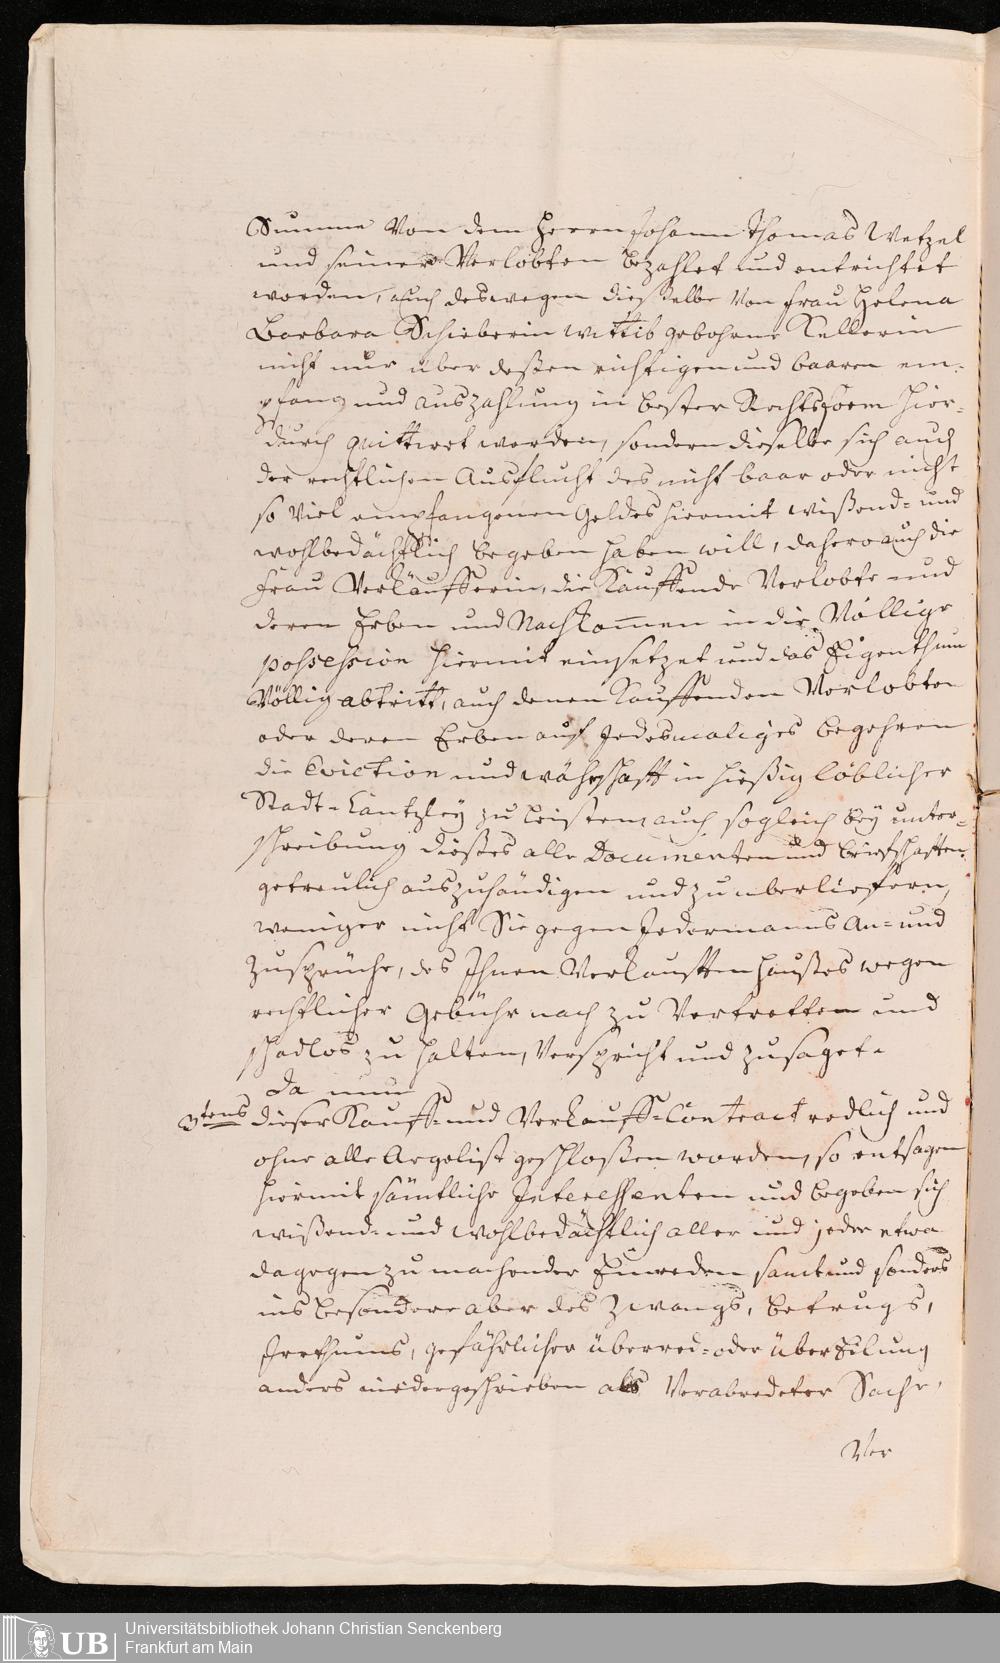 Summa von dem Herrn Johann Thomas Wetzel
und seiner Verlobten bezahlet und entrichtet
worden, auch deswegen dießelbe von Frau Helena
Barbara Schieberin Wittib gebohrne Kellerin
nicht nur über deßen richtigen und baaren em-
pfang und auszahlung in bester Rechtsform hier-
durch quittiret werden, sondern dieselbe sich auch
der rechtlichen Ausflucht des nicht baar oder nicht
so viel empfangenen Geldes hiermit wißend- und
wohlbedächtlich begeben haben will, dahero auch die
Frau Verkäufferin, die Käuffende Verlobte und
deren Erben und Nachkom̅en in die Völlige
possession hiermit einsetzet und das Eigenthum
Völlig abtritt, auch denen Kauffenden Verlobten
oder deren Erben auf jedesmaliges begehren
die Eviction und währschafft in hießig löblicher
Stadt-Cantzley zu leisten, auch sogleich bey unter-
schreibung dießes alle Documenten und briefschafften
getreulich auszuhändigen und zu uberliefern,
weniger nicht Sie gegen Jedermanns An- und
Zusprüche, des Ihnen Verkaufften Haußes wegen
rechtlicher Gebühr nach zu Vertretten und
schadlos zu halten, Verspricht und zusaget.
Da nun
3tens dieser Kauff- und Verkauff-Contract redlich und
ohne alle Argelist geschloßen worden, so entsagen
hiermit sämtliche Interessenten und begeben sich
wißend- und wohlbedächtlich aller und jeder etwa
dagegen zu machender Einreden samt und sonders
ins besondere aber des Zwangs, betrugs,
Irrthums, gefährlicher überred- oder übereilung
anders niedergeschrieben als Verabredeter Sache,
Ver
UB Universitätsbibliothek Johann Christian Senckenberg
Frankfurt am Main